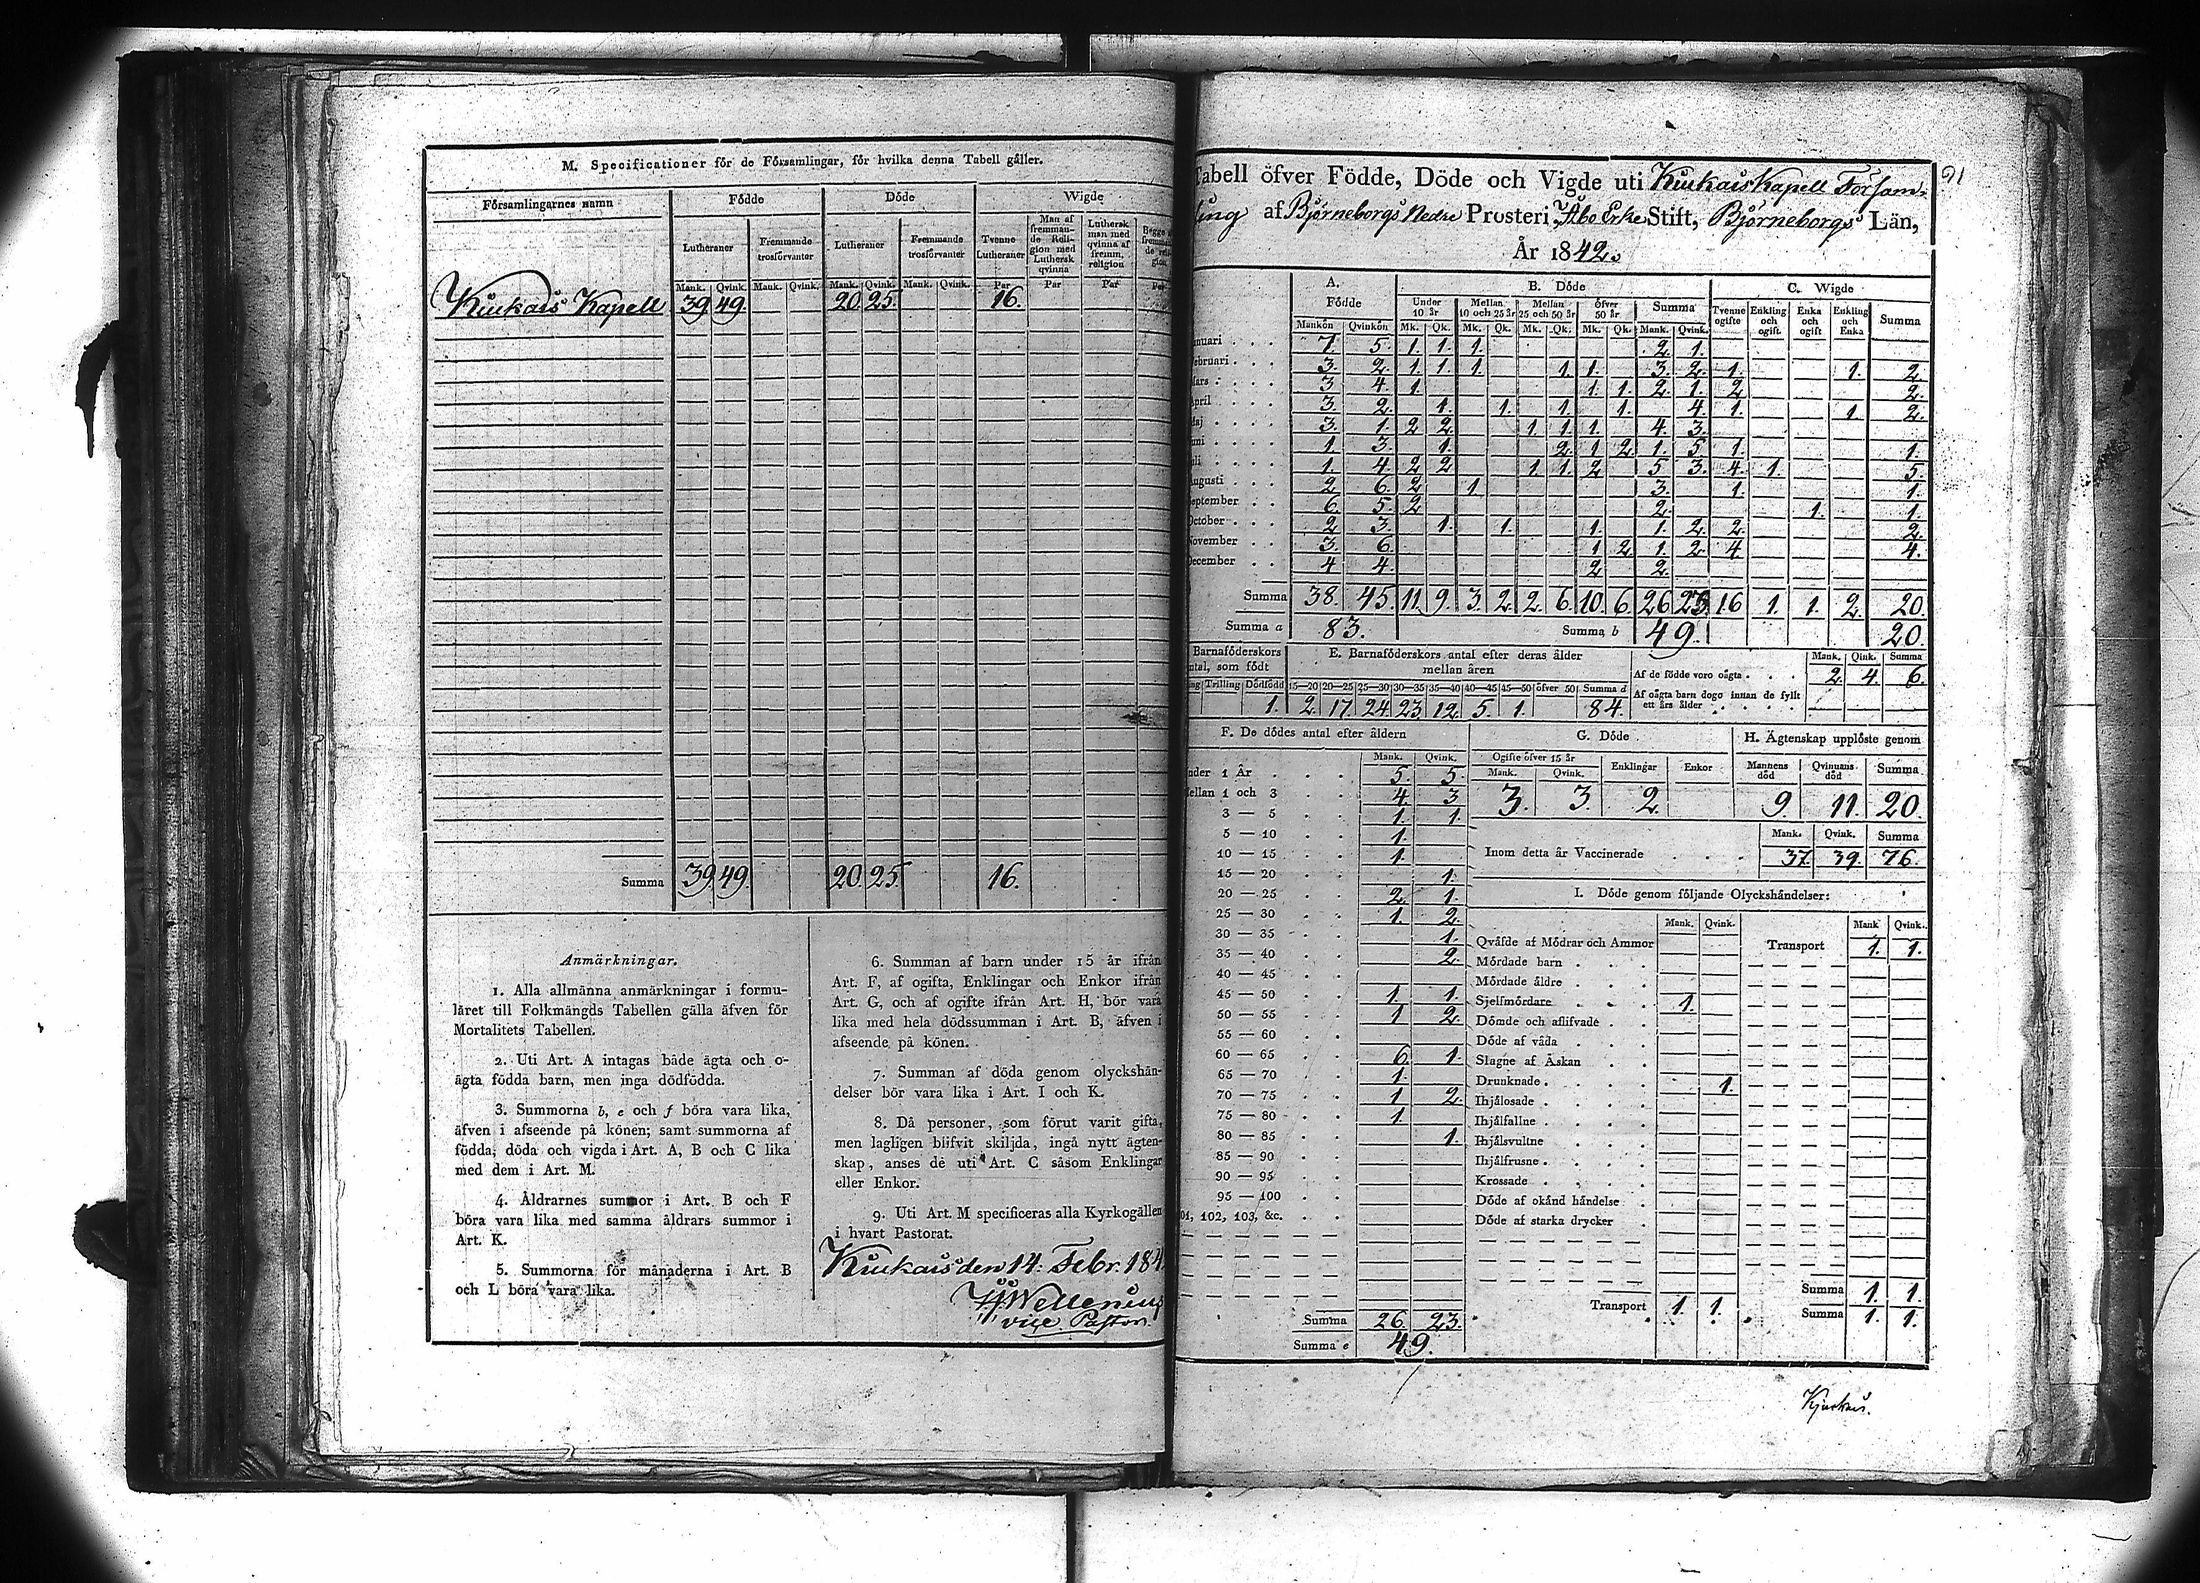 M. Specificationer för de Församlingar, för hvilka denna Tabell gäller.
Församlingarnes namn Födde Döde Wigde
Lutheraner Fremmande trosförvanter Lutheraner Fremmande trosförvanter Tvenne Lutheraner Man af fremmande Religion med Luthersk qvinna Luthersk man med qvinna af fremm. religion Begge
Mank. Qvink. Mank. Qvink. Mank. Qvink. Mank. Qvink. Par Par Par
Kiukais Kapell 39. 49. 20. 25. 16.
Summa 39. 49. 20. 25. 16.
Anmärkningar.
1. Alla allmänna anmärkningar i formu-
läret till Folkmängds Tabellen gälla äfven för
Mortalitets Tabellen.
2. Uti Art. A intagas både ägta och o-
ägta födda barn, men inga dödfödda.
3. Summorna b, e och f böra vara lika,
äfven i afseende på könen; samt summorna af
födda, döda och vigda i Art. A, B och C lika
med dem i Art. M.
4. Åldrarnes summor i Art. B och F
böra vara lika med samma åldrars summor i
Art. K.
5. Summorna för månaderna i Art. B
och L böra vara lika.
6. Summan af barn under 15 år ifrån
Art. F, af ogifta, Enklingar och Enkor ifrån
Art. G, och af ogifte ifrån Art. H, bör vara
lika med hela dödssumman i Art. B, äfven i
afseende på könen.
7. Summan af döda genom olyckshän-
delser bör vara lika i Art. I och K.
8. Då personer, som förut varit gifta,
men lagligen blifvit skiljda, ingå nytt ägten-
skap, anses de uti Art. C såsom Enklingar
eller Enkor.
9. Uti Art. M specificeras alla Kyrkogällen
i hvart Pastorat.
Kiukais den 14. Febr. 184
Wellenius
vice Pastor
91
Tabell öfver Födde, Döde och Vigde uti Kiukais Kapell Försam-
ling af Björneborgs Nedre Prosteri, Åbo Erke Stift, Björneborgs Län,
År 1842.
A. Födde B. Döde C. Wigde
Under 10 år Mellan 10 och 25 år Mellan 25 och 50 år öfver 50 år Summa Tvenne ogifte Enkling och ogift Enka och ogift Enkling och Enka Summa
Mankön Qvinkön Mk. Qk. Mk. Qk. Mk. Qk. Mk. Qk. Mank. Qvink.
Januari 7. 5. 1. 1. 1. 2. 1.
Februari 3. 2. 1. 1. 1. 1. 1. 3. 2. 1. 1. 2.
Mars 3 4. 1. 1. 1. 2. 1. 2 2.
April 3. 2. 1. 1. 1. 1. 4. 1. 1. 2.
Maj 3. 1. 2 2. 1. 1. 1. 4. 3.
Juni 1. 3. 1. 2. 1. 2. 1. 5. 1. 1.
Juli 1. 4. 2 2 1. 1. 2 5 3. 4. 1. 5.
Augusti 2. 6. 2 1. 3. 1. 1.
September 6. 5. 2 2. 1. 1.
October 2 3. 1. 1. 1. 1. 2. 2. 2.
November 3. 6. 1 2. 1. 2. 4. 4.
December 4 4. 2 2.
Summa 38. 45. 11. 9. 3. 2. 2. 6. 10. 6. 26 23 16 1. 1. 2. 20.
Summa a 83. Summa b 49. 20.
Barnaföderskors antal, som födt E. Barnaföderskors antal efter deras ålder mellan åren
Trilling Dödfödd 15—20 20—25 25—30 30—35 35—40 40—45 45—50 öfver 50 Summa d
1. 2. 17. 24. 23. 12. 5. 1. 84.
Mank. Qink. Summa
Af de födde voro oägta 2. 4. 6.
Af oägta barn dogo innan de fyllt
ett års ålder
F. De dödes antal efter åldern
Mank. Qvink.
Under 1 År 5. 5.
Mellan 1 och 3 4. 3.
3 — 5 1. 1.
5 — 10 1.
10 — 15 1.
15 — 20 1.
20 — 25 2. 1.
25 — 30 1. 2.
30 — 35 1.
35 — 40 2.
40 — 45
45 — 50 1. 1.
50 — 55 1 2.
55 — 60
60 — 65 6. 1.
65 — 70 1.
70 — 75 1 2.
75 — 80 1.
80 — 85 1.
85 — 90
90 — 95
95 — 100
101, 102, 103, &c.
Summa 26. 23.
Summa e 49.
G. Döde
Ogifte öfver 15 år Enklingar Enkor
Mank. Qvink.
3. 3 2.
H. Ägtenskap upplöste genom
Mannens död Qvinnans död Summa
9. 11. 20.
Mank. Qvink. Summa
Inom detta år Vaccinerade 37. 39. 76.
I. Döde genom följande Olyckshändelser:
Mank. Qvink. Mank Qvink.
Qväfde af Mödrar och Ammor Transport 1. 1.
Mördade barn
Mördade äldre
Sjelfmördare 1.
Dömde och aflifvade
Döde af våda
Slagne af Åskan
Drunknade 1.
Ihjälosade
Ihjälfallne
Ihjälsvultne
Ihjälfrusne
Krossade
Döde af okänd händelse
Döde af starka drycker
Summa 1. 1.
Transport 1. 1. Summa 1. 1.